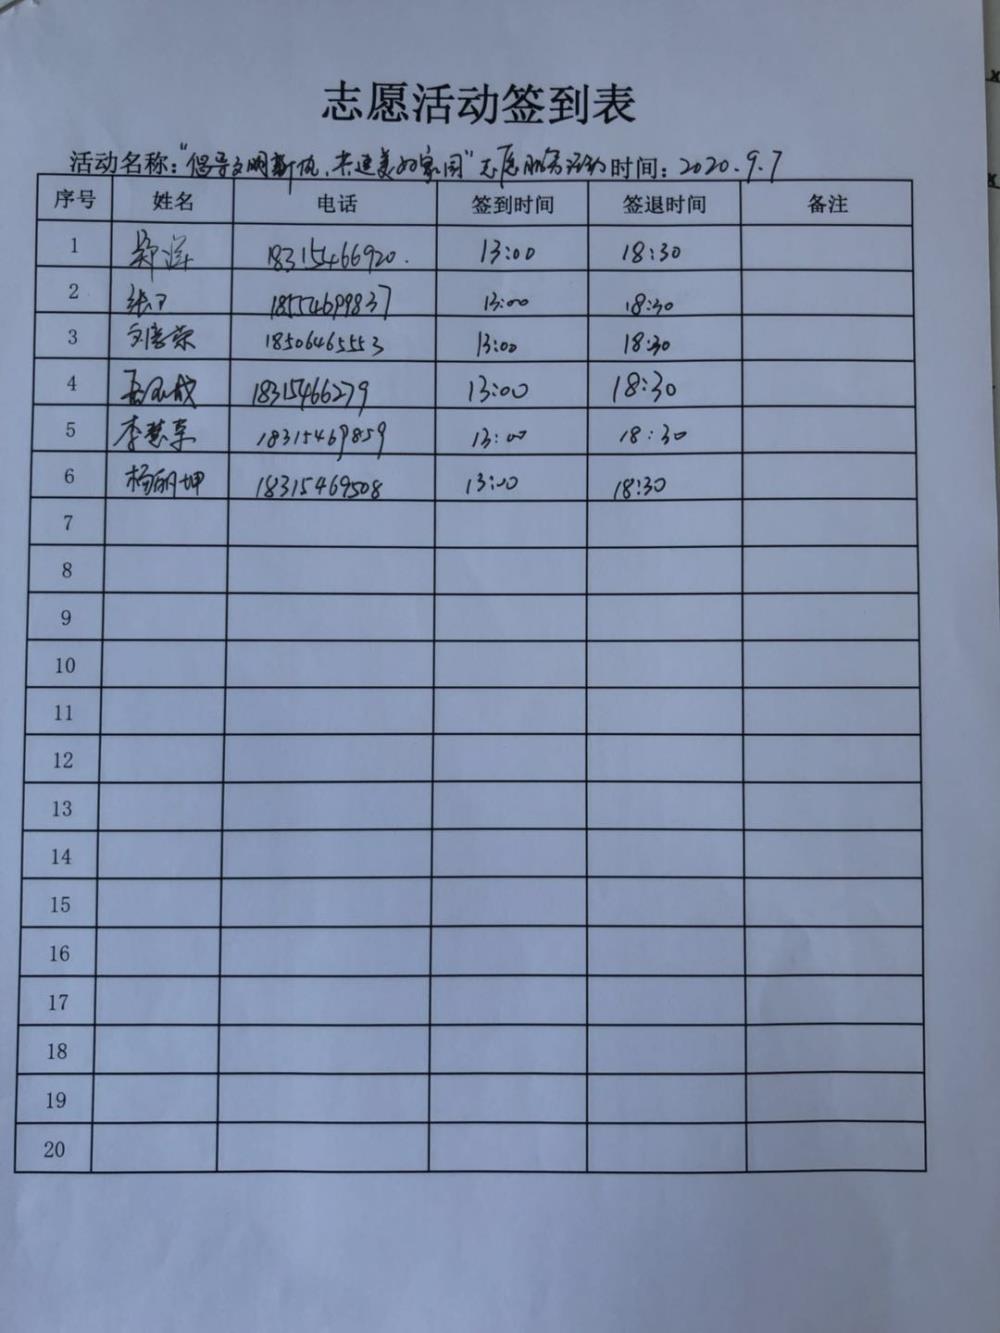 志愿活动签到表
活动名称："倡导文明新风,共建美好家园"志愿服务活动 时间：2020.9.7
序号 姓名 电话 签到时间 签退时间 备注
1 郑 18315466920. 13:00 18:30
2 张卫 18554699837 13:00 18:30
3 18506465553 13:00 18:30
4 18315466279 13:00 18:30
5 李慧 18315469859 13:00 18:30
6 杨丽坤 18315469508 13:00 18:30
7
8
9
10
11
12
13
14
15
16
17
18
19
20